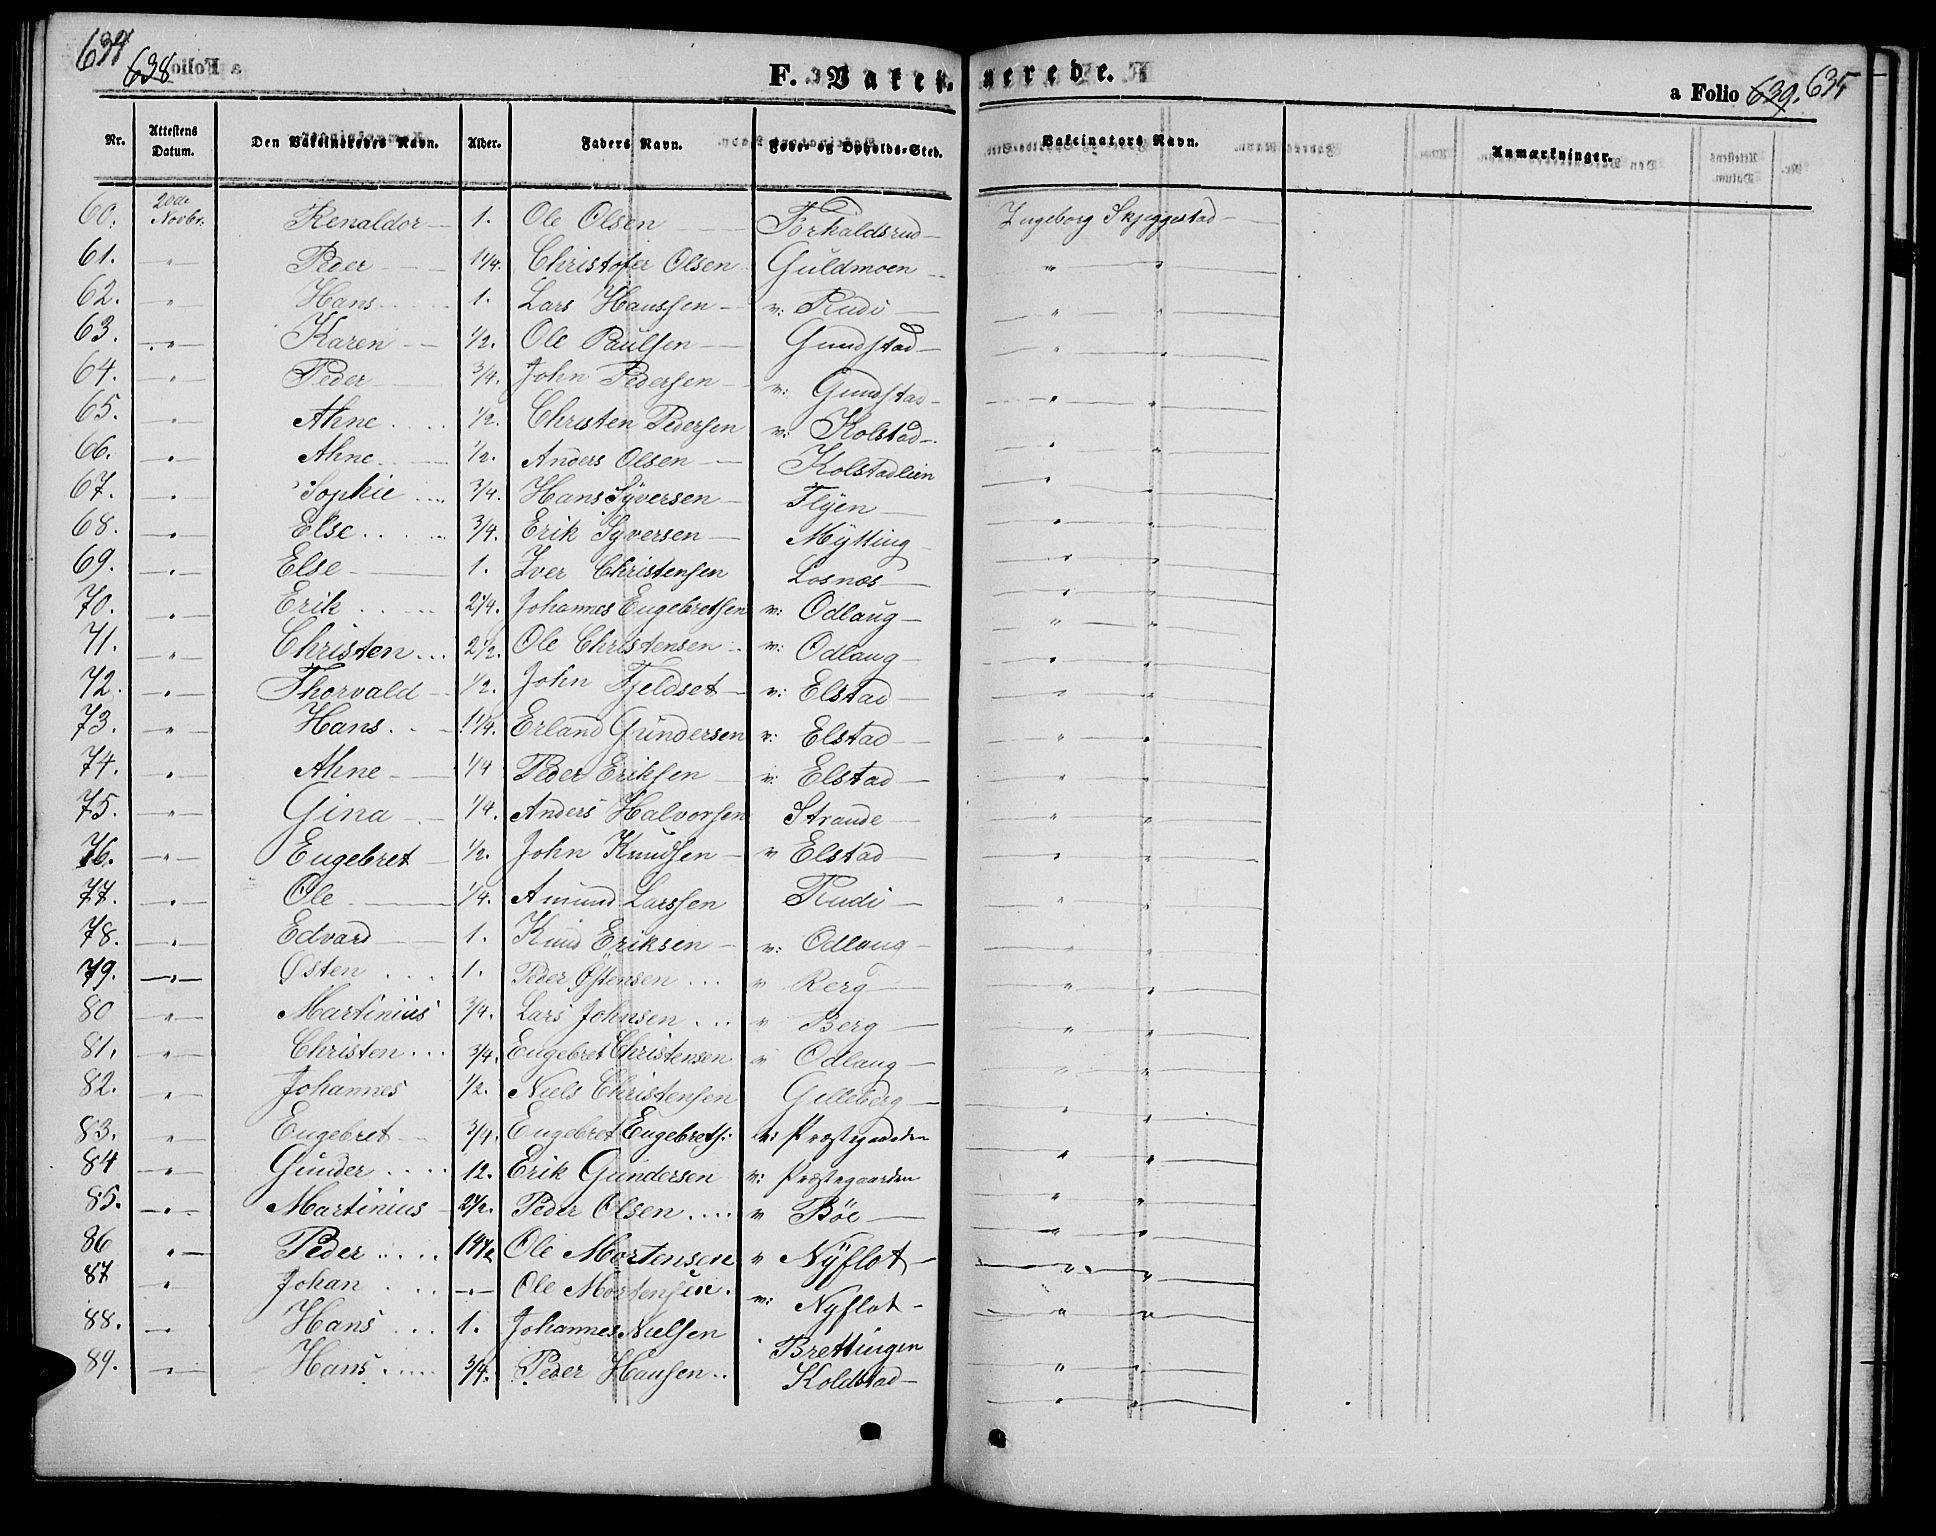 634 638 F. Vakcinerede. a Folio 639. 635
Nr. Attestens Datum. Den Vakcineredes Navn. Alder. Faders Navn. Føde- og Opholds-Sted. Vakcinators Navn. Anmærkninger.
60. 20de Novbr. Renaldor 1. Ole Olsen Torhaldsrud Ingeborg Skjeggestad
61. " Peder 1 1/4. Christofer Olsen Guldmoen " "
62. " Hans 1. Lars Hanssen v: Rudi " "
63. " Karen 1/2. Ole Paulsen Gundstad " "
64. " Peder 3/4. John Pedersen v: Gundstad " "
65. " Ahne 1/2. Christen Pedersen v: Kolstad " "
66. " Ahne 1/2. Anders Olsen Kolstadlien " "
67. " Sophie 3/4. Hans Syversen Flyen " "
68. " Else 3/4. Erik Syversen Mytting " "
69. " Else 1. Iver Christensen Losnæs " "
70. " Erik 2 1/4. Johannes Engebretsen v: Odlaug " "
71. " Christen 2 1/2. Ole Christensen v: Odlaug " "
72. " Thorvald 1/2. John Fjeldset v: Elstad " "
73. " Hans 1 1/4. Erland Gundersen v: Elstad " "
74. " Ahne 1/4 Peder Eriksen v: Elstad " "
75. " Gina 1/4. Anders Halvorsen Strande " "
76. " Engebret 1/2. John Knudsen v Elstad " "
77. " Ole 1/4. Amund Larssen Rudi " "
78. " Edvard 1. Knud Eriksen v: Odlaug " "
79. " Østen 1. Peder Østensen v Berg " "
80 " Martinius 3/4. Lars Johnsen v Berg " "
81. " Christen 3/4. Engebret Christensen v Odlaug " "
82. " Johannes 1/2. Niels Christensen Gilleberg " "
83. " Engebret 3/4. Engebret Engebrets: v: Præstegaarden " "
84 " Gunder 12. Erik Gundersen v: Præstegaarden " "
85. " Martinius 2 1/2. Peder Olsen v Böe " "
86 " Peder 14 1/2 Ole Mortensen v Nyflot " "
87 " Johan " Ole Mortensen. v: Nyflot " "
88. " Hans 1. Johannes Nielsen Brettingen " "
89. " Hans 3/4. Peder Hansen Koldstad " "